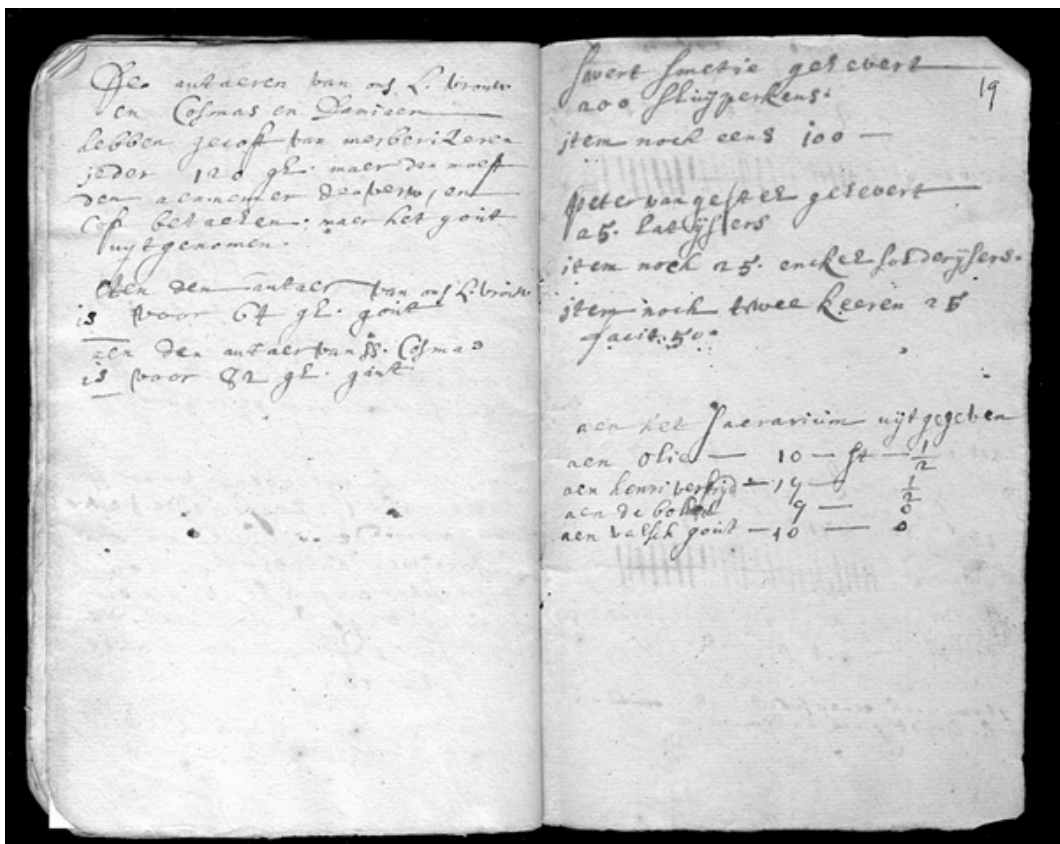 Den autaeren van ons L. vrouw
en Cosmas en Damiaen
hebben gecost van merberizeren
jeder 120 gl. maer den moest
den aennemer den verw, en
cost betaelen. maer het gout
uijtgenomen.
Aen den autaer van ons L. vrouw
is voor 64 gl. gout
aen den autaer van SS. Cosmas
is voor 82 gl. gout
19
swert smetie gelevert
200 sluijperkens.
item noch eens 100 —
peter van gestel gelevert
25. latijsers
item noch 25. enckel solderijsers.
item noch twee keeren 25
facit. 50.
aen het sacrarium uijtgegeven
aen olie — 10 — st — 1/2
aen henri — 14 — 1/2
aen de 9 — 0
aen valsch gout — 10 — 0